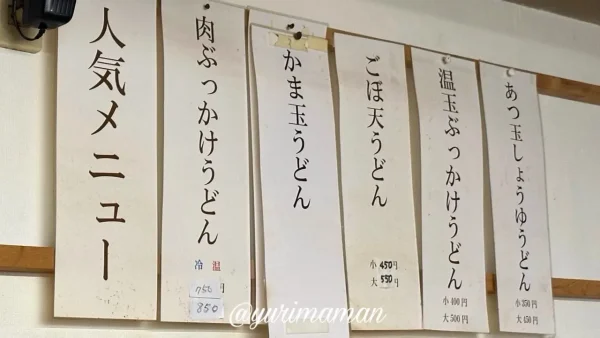 人気メニュー
肉ぶっかけうどん
冷 温
750円
850
かま玉うどん
ごぼ天うどん
小 450円
大 550円
温玉ぶっかけうどん
小 400円
大 500円
あつ玉しょうゆうどん
小 350円
大 450円
@yurimaman